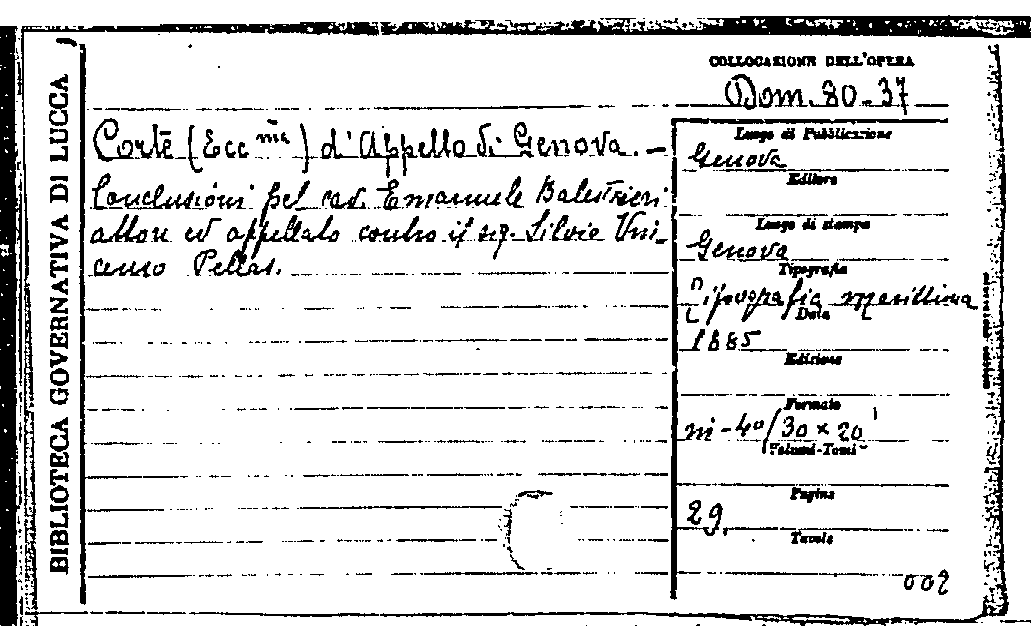 BIBLIOTECA GOVERNATIVA DI LUCCA
COLLOCAZIONE DELL'OPERA
Dom. 80-37
Corte (Ecc ma) d'Appello di Genova. —
Conclusioni pel cav. Emanuele Balestrieri
attore ed appellato contro il sig. Silvio Vin-
cenzo Pellas.
Luogo di Pubblicazione
Genova
Editore
Luogo di stampa
Genova
Tipografia
Tipografia marittima
Data
1885
Edizione
Formato
in-4º/30 × 20
Volumi-Tomi
Pagine
29.
Tavole
002